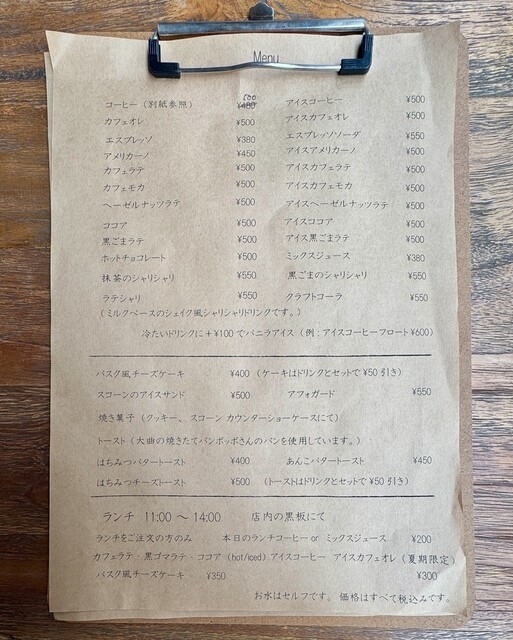 Menu
コーヒー（別紙参照） 500 ¥480 アイスコーヒー ¥500
カフェオレ ¥500 アイスカフェオレ ¥500
エスプレッソ ¥380 エスプレッソソーダ ¥550
アメリカーノ ¥450 アイスアメリカーノ ¥500
カフェラテ ¥500 アイスカフェラテ ¥500
カフェモカ ¥500 アイスカフェモカ ¥500
ヘーゼルナッツラテ ¥500 アイスヘーゼルナッツラテ ¥500
ココア ¥500 アイスココア ¥500
黒ごまラテ ¥500 アイス黒ごまラテ ¥500
ホットチョコレート ¥500 ミックスジュース ¥380
抹茶のシャリシャリ ¥550 黒ごまのシャリシャリ ¥550
ラテシャリ ¥550 クラフトコーラ ¥550
（ミルクベースのシェイク風シャリシャリドリンクです。）
冷たいドリンクに＋¥100でバニラアイス（例：アイスコーヒーフロート¥600）
バスク風チーズケーキ ¥400（ケーキはドリンクとセットで¥50引き）
スコーンのアイスサンド ¥500 アフォガード ¥550
焼き菓子（クッキー、スコーン カウンターショーケースにて）
トースト（大曲の焼きたてパンポッポさんのパンを使用しています。）
はちみつバタートースト ¥400 あんこバタートースト ¥450
はちみつチーズトースト ¥500 （トーストはドリンクとセットで¥50引き）
ランチ 11:00 〜 14:00 店内の黒板にて
ランチをご注文の方のみ 本日のランチコーヒー or ミックスジュース ¥200
カフェラテ・黒ゴマラテ・ココア（hot/iced）アイスコーヒー アイスカフェオレ（夏期限定）
バスク風チーズケーキ ¥350 ¥300
お水はセルフです。価格はすべて税込みです。